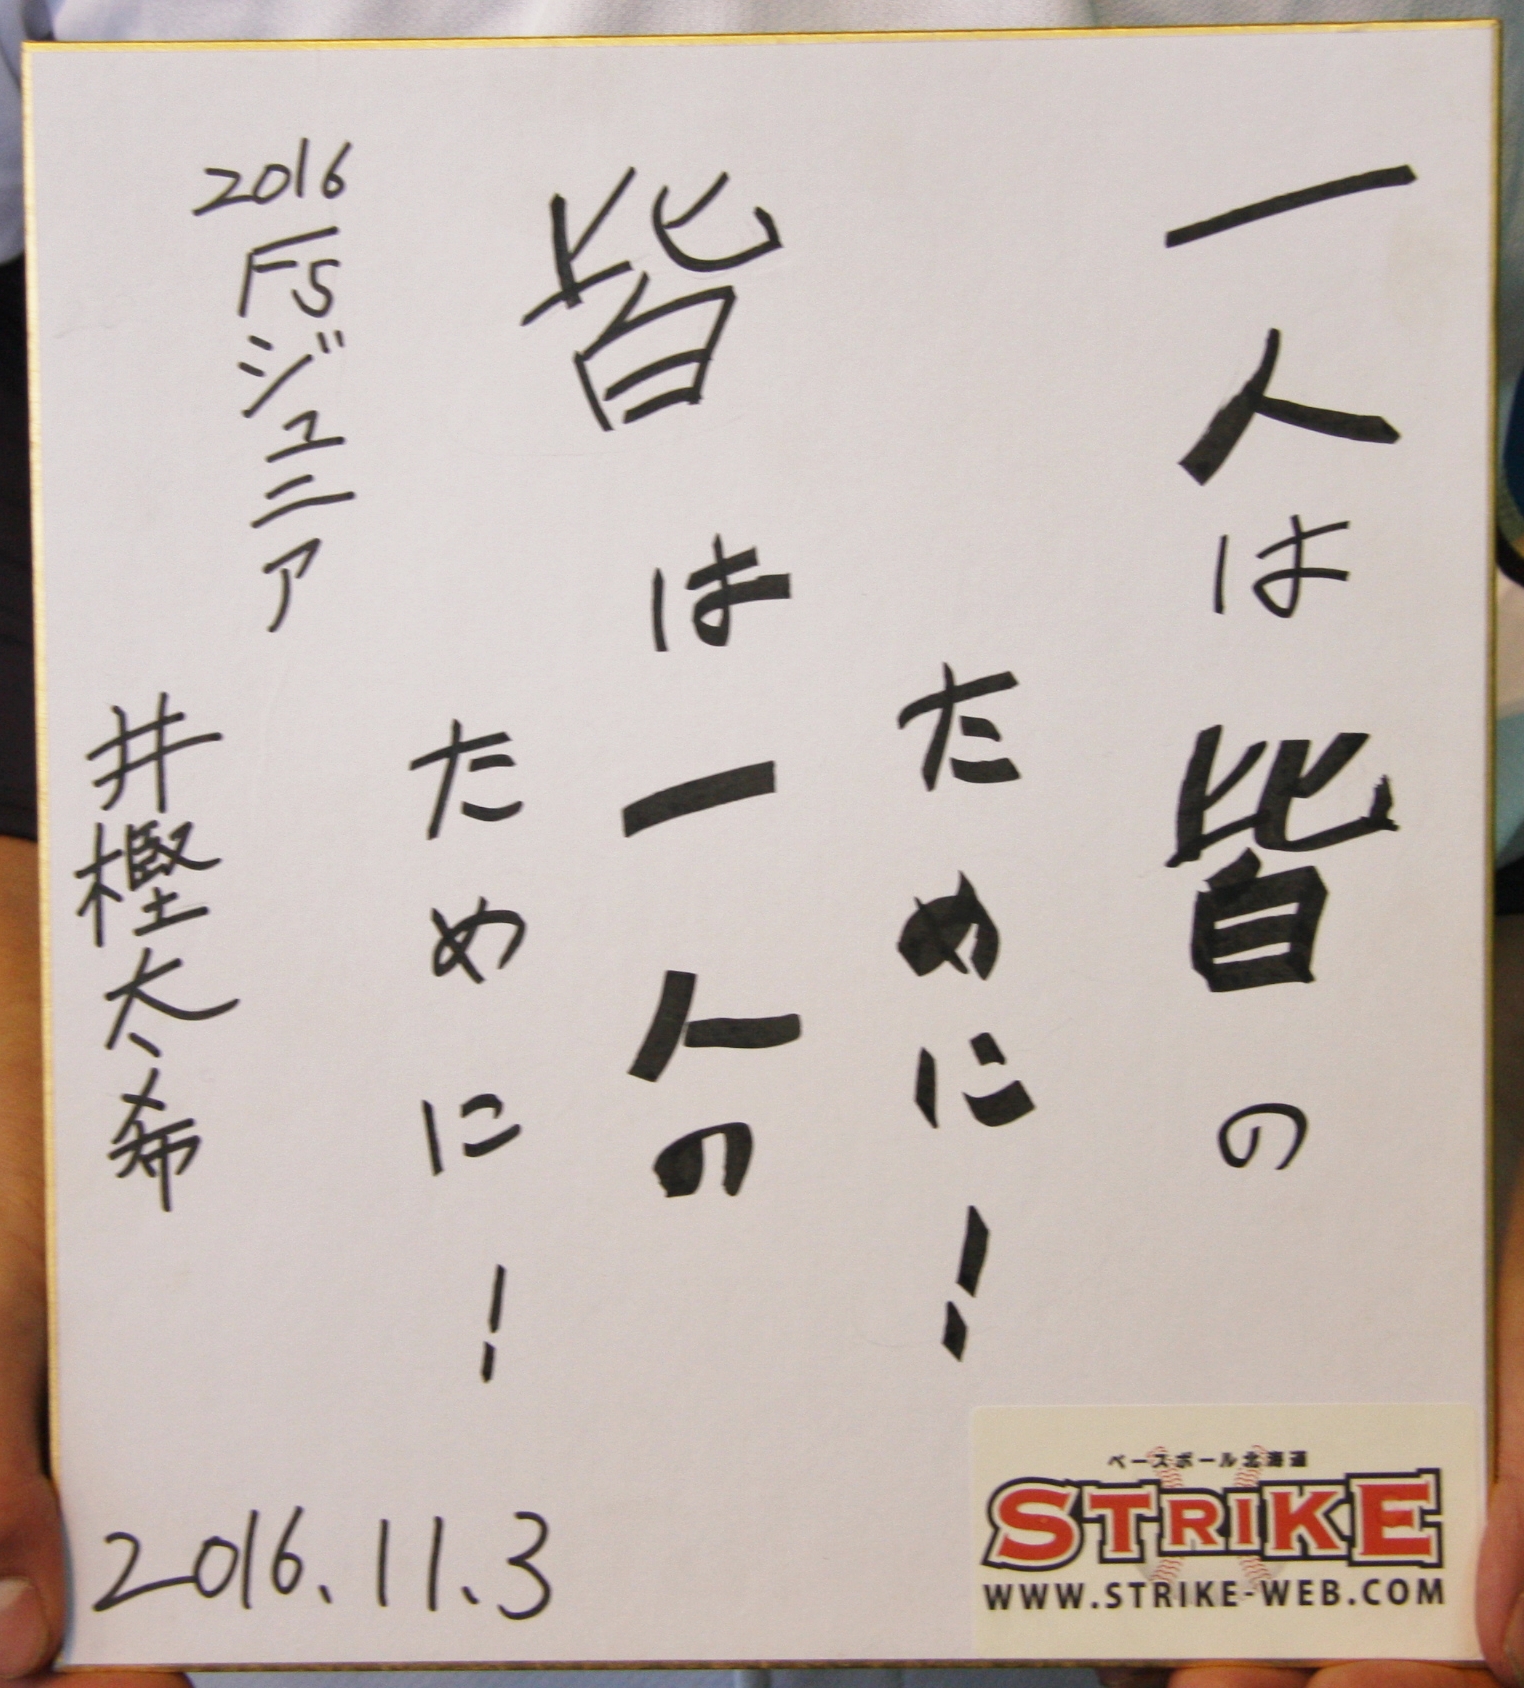 一人は皆の
ために!
皆は一人の
ために!
2016
FSジュニア
井樫太希
2016.11.3
ベースボール北海道
STRIKE
WWW.STRIKE-WEB.COM